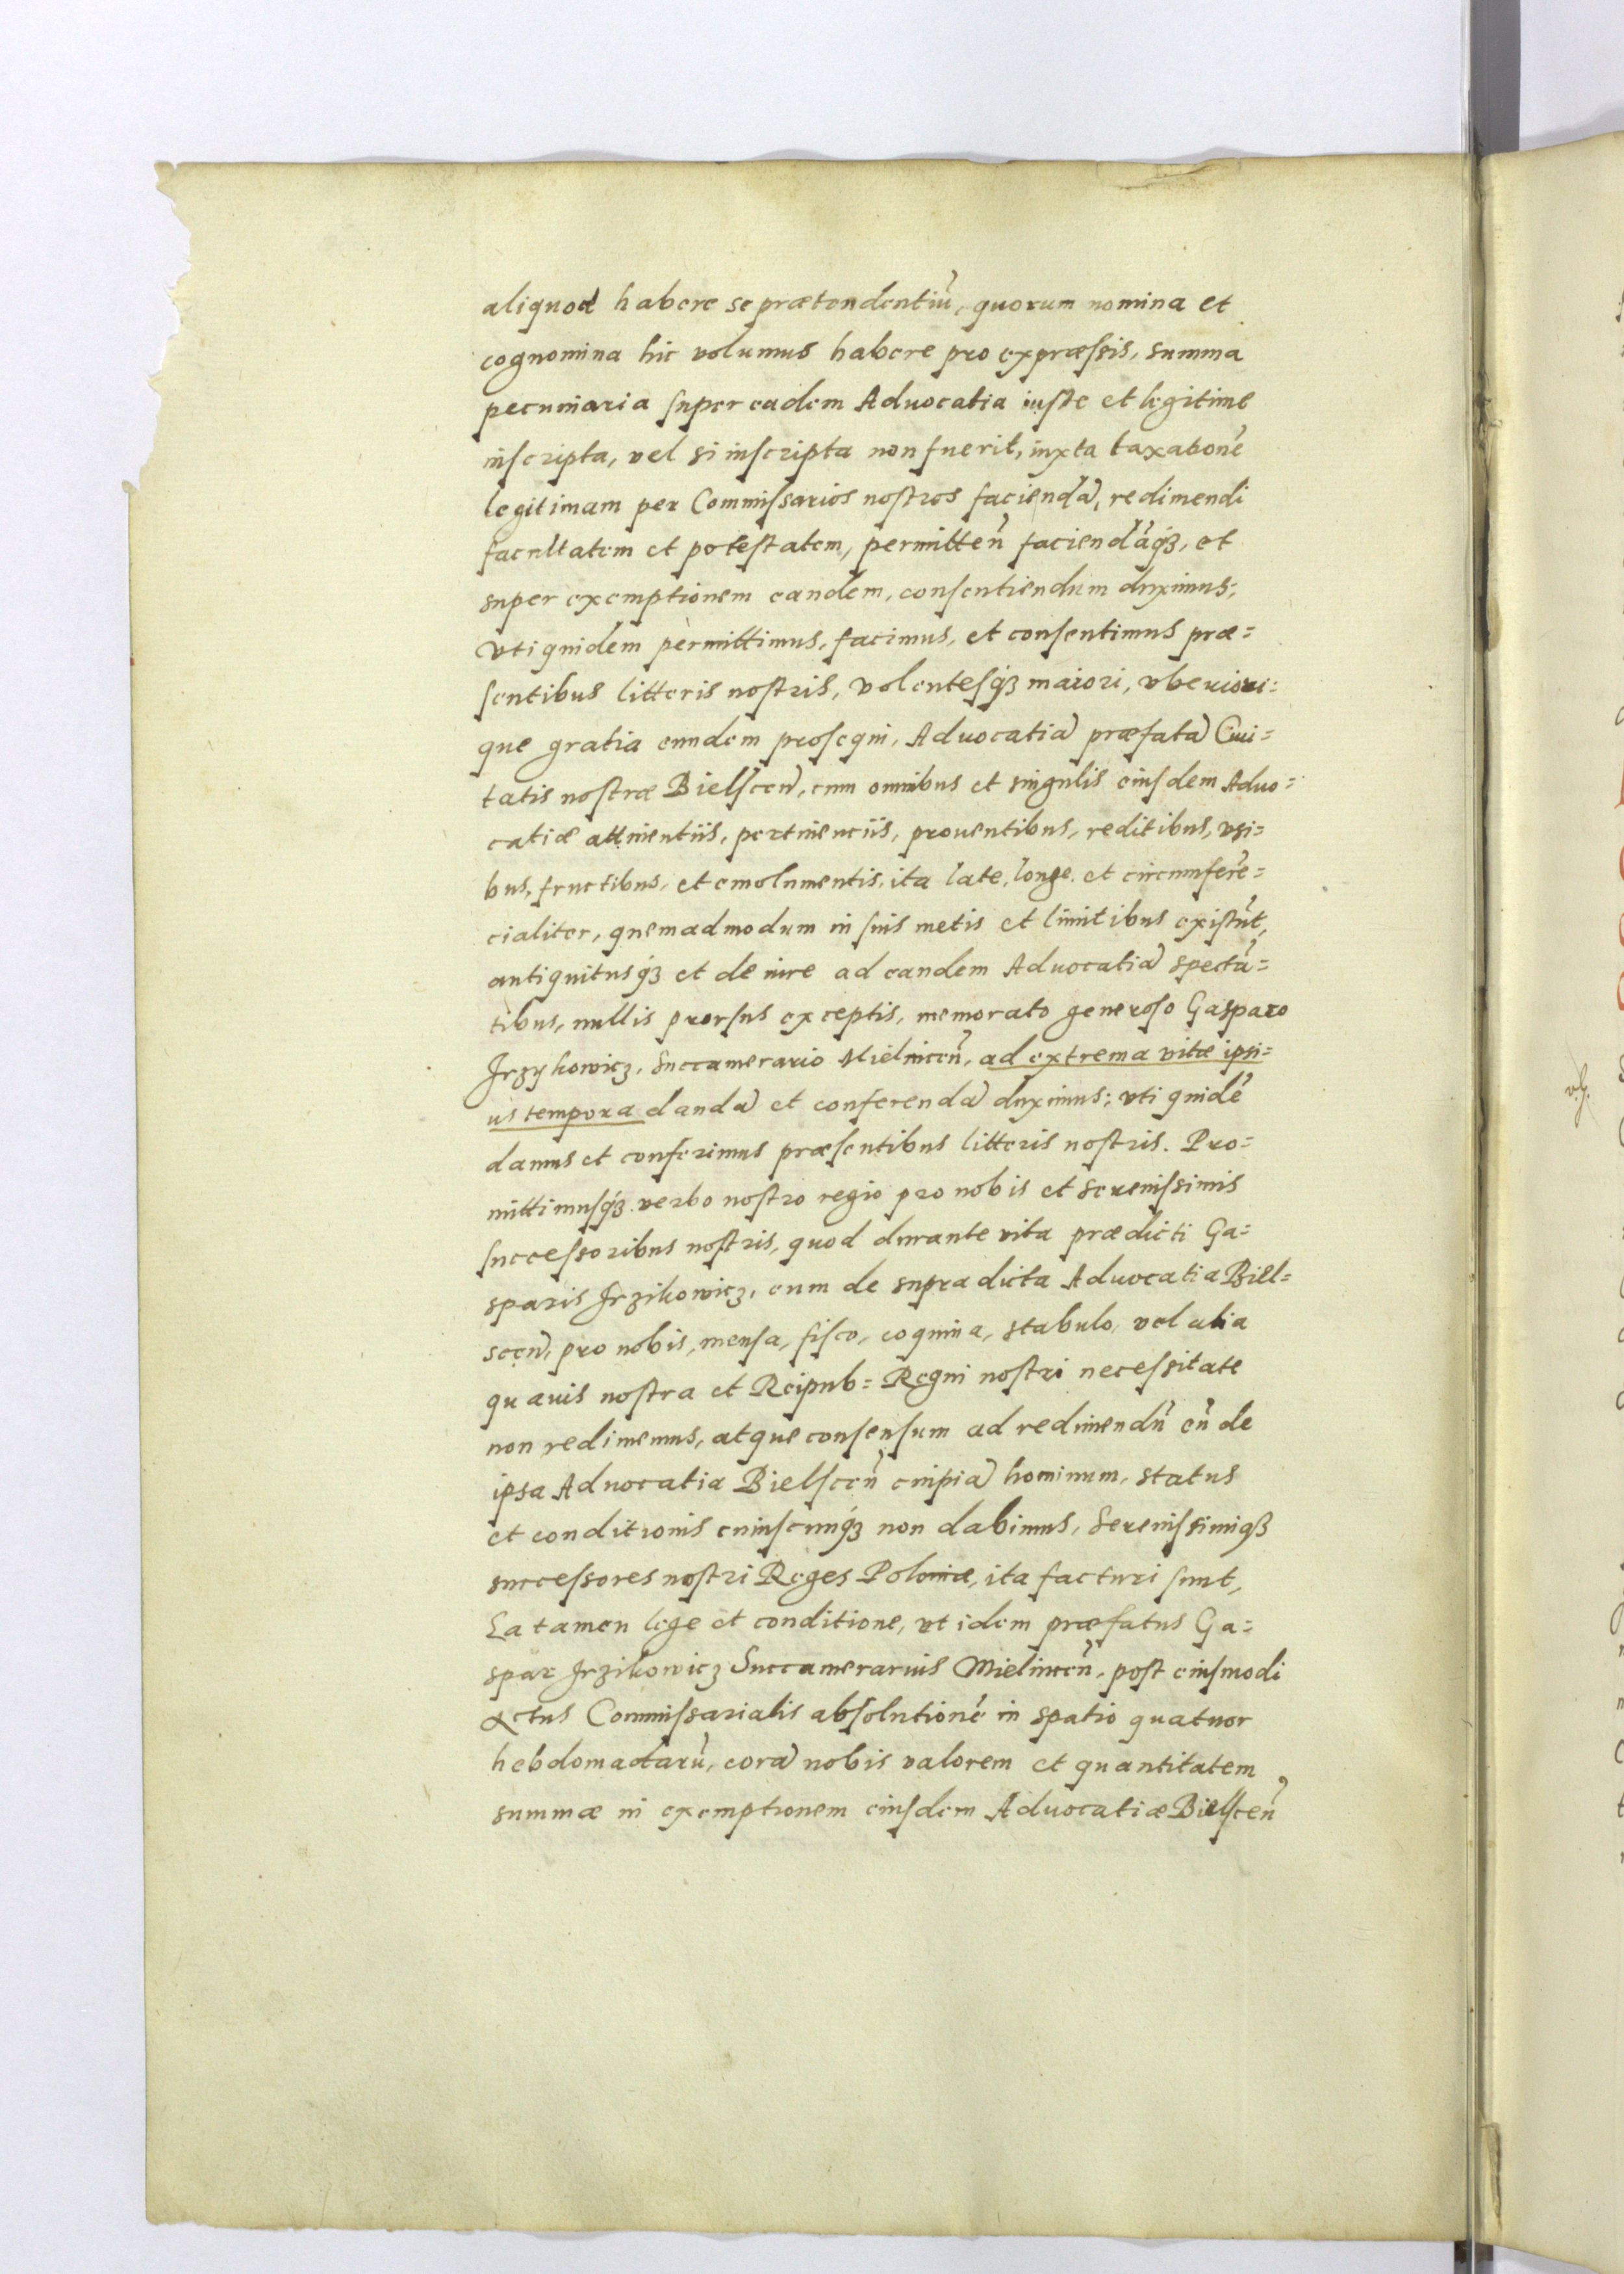 aliquod habere se prætendentiū, quorum nomina et
cognomina hic volumus habere pro expræſsis, summa
pecuniaria ſuper eadem Aduocatia iuſte et legitime
inſcripta, vel si inſcripta non fuerit, iuxta taxationē
legitimam per Commiſsarios noſtros faciendā, redimendi
facultatem et poteſtatem, permitten̄ faciendāq́ꝫ, et
super exemptionem eandem, conſentiendum duximus;
Vti quidem permittimus, facimus, et conſentimus præ=
ſentibus litteris noſtris, Volenteſq́ꝫ maiori, vberiori=
que gratia eundem proſequi, Aduocatiā præfatā Ciui=
tatis noſtræ Bielſcen̄, cum omnibus et singulis eiuſdem Aduo=
catiæ attinentiis, pertinenciis, prouentibus, reditibus, vsi=
bus, fructibus, et emolumentis, ita late, longe, et circumferē=
cialiter, quemadmodum in ſuis metis et limitibus exiſtūt,
antiquitusq́ꝫ et de iure ad eandem Aduocatiā spectā=
tibus, nullis prorſus exceptis, memorato generoſo Gasparo
Jrzykowicz, Succamerario Mielnicen̄, ad extrema vitæ ipsi=
us tempora dandā et conferendā duximus; vti quidē
damus et conferimus præſentibus litteris noſtris. Pro=
mittimuſq́ꝫ verbo noſtro regio pro nobis et Sereniſsimis
ſucceſsoribus noſtris, quod durante vita prædicti Ga=
sparis Jrzikowicz, eum de supra dicta Aduocatia Biel=
scen̄, pro nobis, menſa, fiſco, coquina, stabulo, vel alia
quauis noſtra et Reipub= Regni noſtri neceſsitate
non redimemus, atque conſenſum ad redimendū eū de
ipsa Aduocatia Bielſcen̄ cuipiā hominum, status
et conditionis cuiuſcunq́ꝫ non dabimus, Sereniſsimiqꝫ
succeſsores noſtri Reges Poloniæ, ita facturi ſunt,
Ea tamen lege et conditione, vt idem præfatus Ga=
spar Jrzikowicz Succamerarius Mielnicen̄, poſt eiuſmodi
actus Commiſsarialis abſolutionē in spatio quatuor
hebdomadarū, corā nobis valorem et quantitatem
summæ in exemptionem eiuſdem Aduocatiæ Bielſcen̄